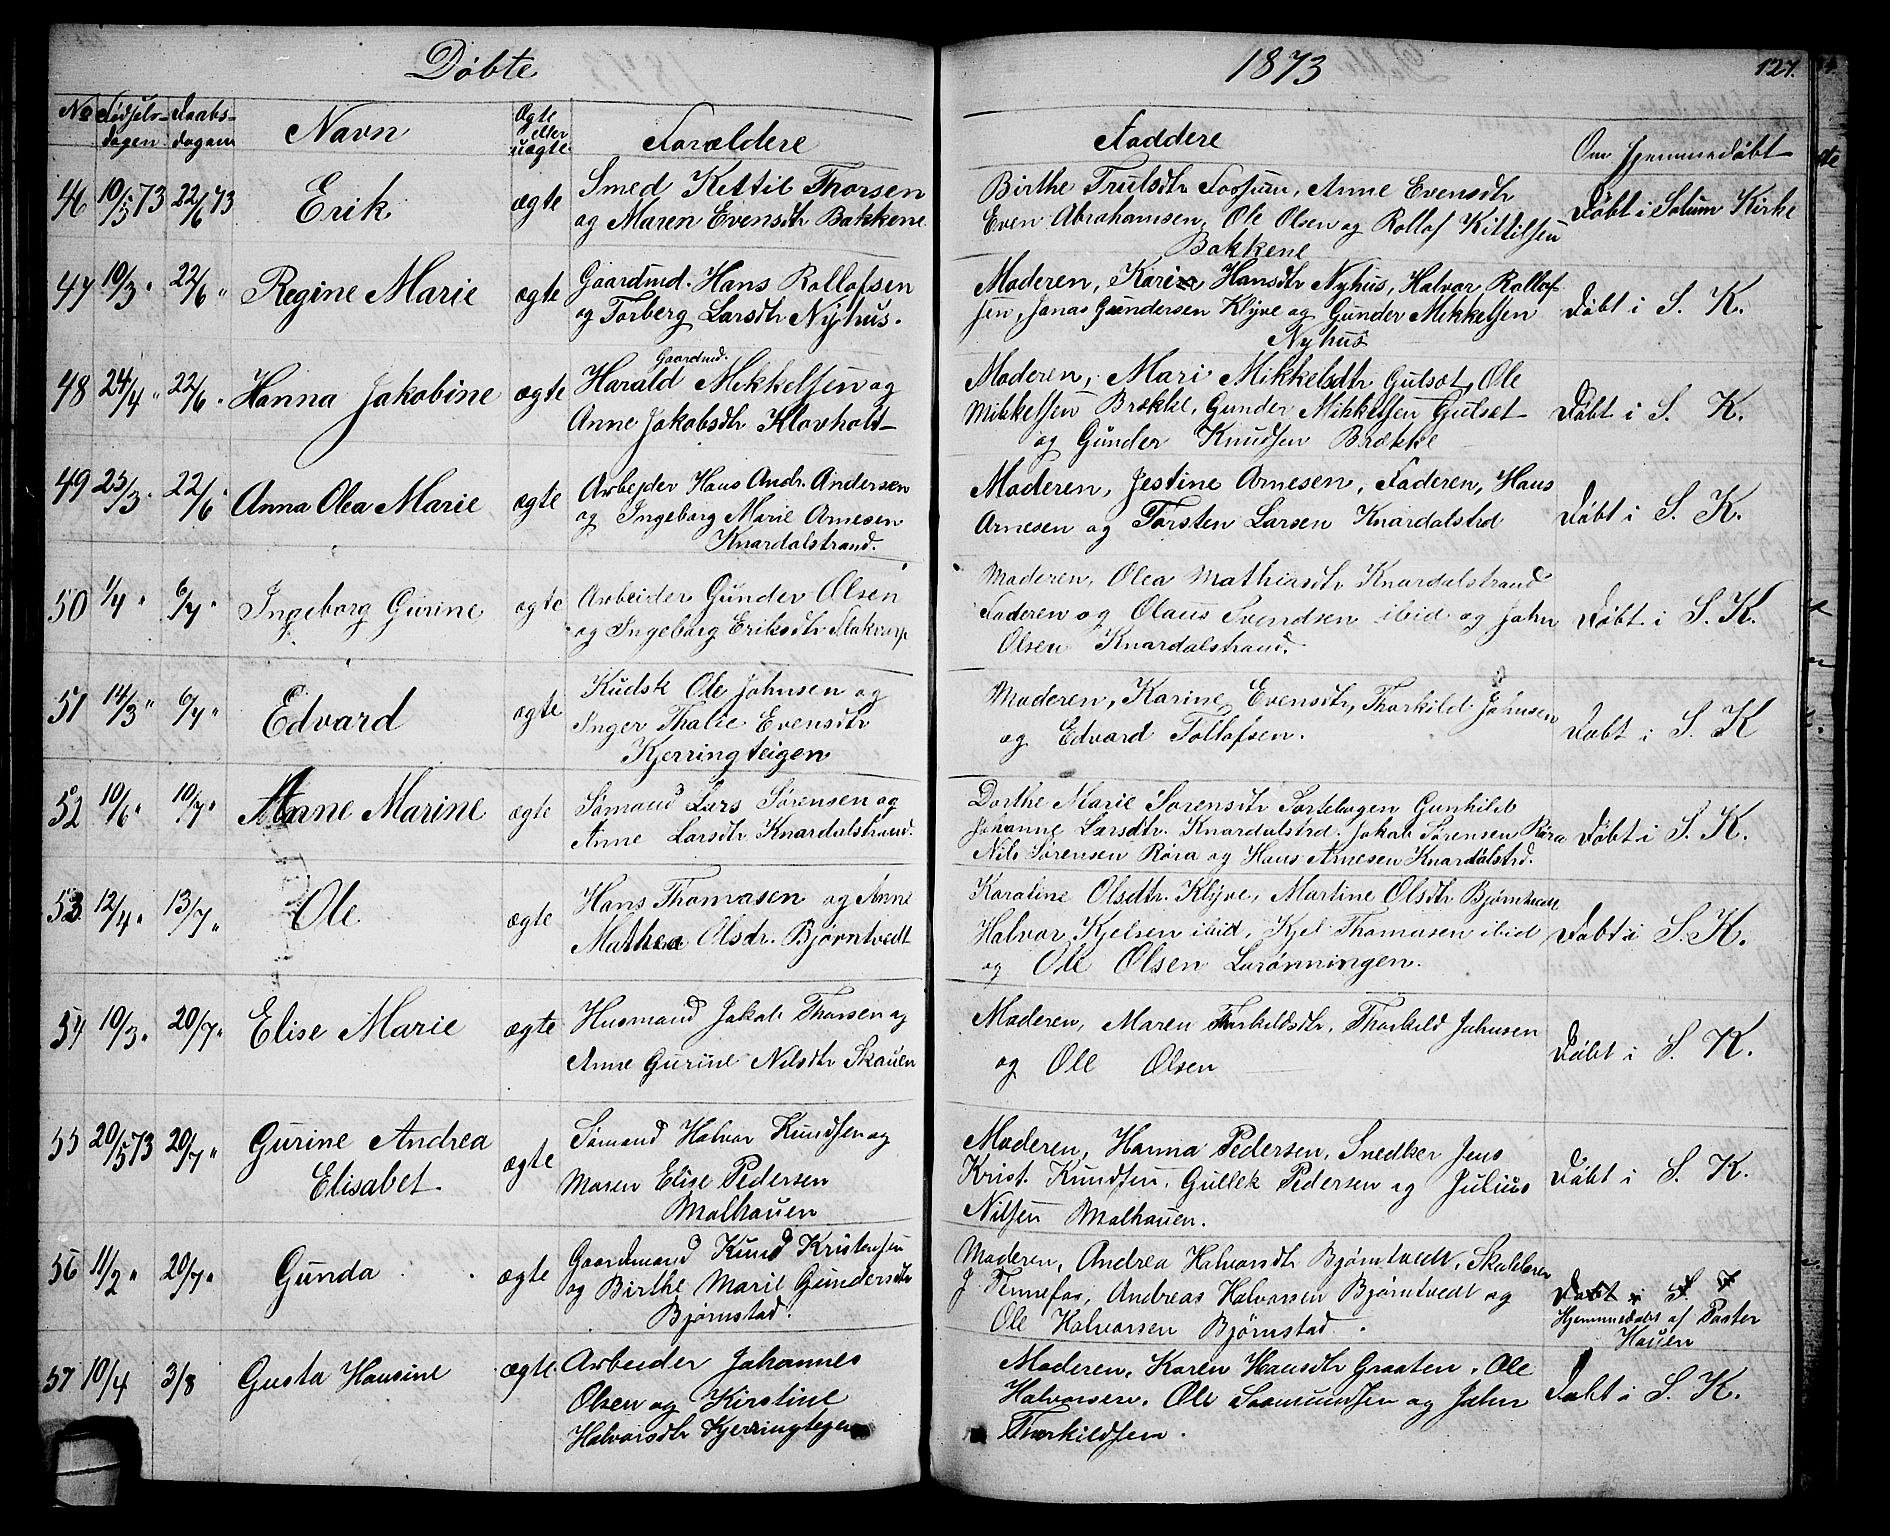 Døbte
1873
127.
No Fødsels- dagen Daabs- dagen Navn Ægte eller uægte Forældere Faddere Om hjemmedøbt
46 10/5 73 22/6 73 Erik ægte Smed Kettil Thorsen
og Maren Evensdtr Bakkene
Birthe Trulsdtr Fossum, Anne Evensdtr
Even Abrahamsen, Ole Olsen og Rollof Kittilsen
Bakkene
Døbt i Solum Kirke
47 19/3 " 22/6 " Regine Marie ægte Gaardmd. Hans Rollofsen
og Torberg Larsdtr Nyhus.
Moderen, Kari Hansdtr Nyhus, Halvor Rollof-
sen, Jonas Gundersen Klyve og Gunder Mikkelsen
Nyhus
Døbt i S. K.
48 24/4 " 22/6 " Hanna Jakobine ægte Gaardmd.
Harald Mikkelsen og
Anne Jakobsdtr Klovholt
Moderen, Mari Mikkelsdtr Gulset, Ole
Mikkelsen Brække, Gunder Mikkelsen Gulset
og Gunder Knudsen Brække
Døbt i S. K.
49 23/3 " 22/6 " Anna Olea Marie ægte Arbejder Hans Andr. Andersen
og Ingeborg Marie Arnesen
Knardalstrand.
Moderen, Jestine Arnesen, Faderen, Hans
Arnesen og Torsten Larsen Knardalstrd
Døbt i S. K.
50 1/4 " 6/7 " Ingeborg Gurine ægte Arbeider Gunder Olsen
og Ingeborg Eriksdtr Flakvarp
Moderen, Olea Mathiasdtr Knardalstrand
Faderen og Olaus Svendsen ibid og John
Olsen Knardalstrand.
Døbt i S. K.
51 14/3 " 6/7 " Edvard ægte Kudsk Ole Johnsen og
Inger Thalie Evensdtr
Kjerringteigen
Moderen, Karine Evensdtr, Thorkild Johnsen
og Edvard Tollofsen.
Døbt i S. K
52 10/6 " 10/7 " Anne Marine ægte Sømand Lars Sørensen og
Anne Larsdtr Knardalstrand.
Dorthe Marie Sørensdtr Sortebogen Gunhild
Johanne Larsdtr. Knardalstrd. Jakob Sørensen Røra
Nils Sørensen Røra og Hans Arnesen Knardalstrd.
Døbt i S. K.
53 12/4 " 13/7 " Ole ægte Hans Thomasen og Anne
Mathea Olsdr. Bjørntvedt
Karoline Olsdtr. Klyve, Martine Olsdtr Bjørntvedt
Halvor Kjelsen ibid, Kjel Thomasen ibid
og Ole Olsen Lorønningen.
Døbt i S. K.
54 10/3 " 20/7 " Elise Marie ægte Husmand Jakob Thorsen og
Anne Gurine Nilsdtr Skauen
Moderen, Maren Thorkildsdtr, Thorkild Johnsen
og Ole Olsen
Døbt i S. K.
55 20/5 73 20/7 " Gurine Andrea
Elisabet ægte Sømand Halvor Knudsen og
Maren Elise Pedersen
Molhauen
Moderen, Hanna Pedersen, Snedker Jens
Krist. Knudsen, Gullek Pedersen og Julius
Nilsen Molhauen.
Døbt i S. K.
56 11/2 " 20/7 " Gunda ægte Gaardmand Knud Kristensen
og Birthe Marie Gundersdtr
Bjørnstad.
Moderen, Andrea Halvorsdtr Bjørntvedt, Skolelærer
J Tennefos, Andreas Halvorsen Bjørntvedt og
Ole Halvorsen Bjørnstad.
Døbt i S
Hjemmedøbt af Pastor
Hauen
57 10/4 3/8 Gusta Hansine ægte Arbeider Johannes
Olsen og Kirstine
Halvorsdtr Kjerringtegen
Moderen, Karen Hansdtr Graaten, Ole
Halvorsen, Ole Saamundsen og John
Thorkildsen.
Døbt i S. K.